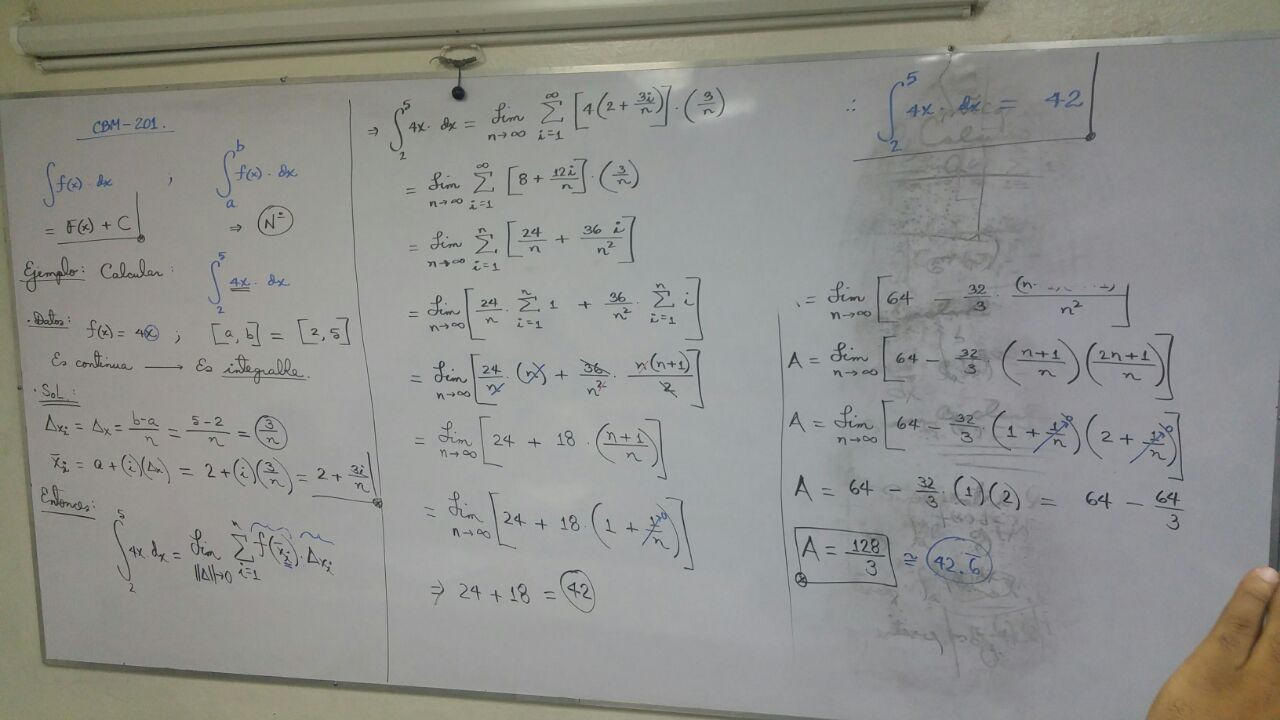 CBM-201.
∫ f(x)·dx ; ∫_a^b f(x)·dx
= F(x) + C ⇒ Nº
Ejemplo: Calcular: ∫_2^5 4x·dx
·Datos: f(x) = 4x ; [a, b] = [2, 5]
Es continua → Es integralle.
·SOL:
Δxᵢ = Δx = (b-a)/n = (5-2)/n = 3/n
x̄ᵢ = a + (i)(Δx) = 2 + (i)(3/n) = 2 + 3i/n
Entonces:
∫_2^5 4x·dx = Lim_{||Δ||→0} Σ_{i=1}^n f(x̄ᵢ)·Δxᵢ
⇒ ∫_2^5 4x·dx = Lim_{n→∞} Σ_{i=1}^∞ [4(2 + 3i/n)]·(3/n)
= Lim_{n→∞} Σ_{i=1}^∞ [8 + 12i/n]·(3/n)
= Lim_{n→∞} Σ_{i=1}^n [24/n + 36 i/n²]
= Lim_{n→∞} [24/n · Σ_{i=1}^n 1 + 36/n² · Σ_{i=1}^n i]
= Lim_{n→∞} [24/n · (n) + 36/n² · n(n+1)/2]
= Lim_{n→∞} [24 + 18·((n+1)/n)]
= Lim_{n→∞} [24 + 18·(1 + 1/n→0)]
⇒ 24 + 18 = 42
∴ ∫_2^5 4x·dx = 42
= Lim_{n→∞} [64 - 32/3 · (n /n²]
A = Lim_{n→∞} [64 - 32/3 · ((n+1)/n)((2n+1)/n)]
A = Lim_{n→∞} [64 - 32/3 · (1 + 1/n→0)(2 + 1/n→0)]
A = 64 - 32/3 · (1)(2) = 64 - 64/3
A = 128/3 ≅ 42.6̄